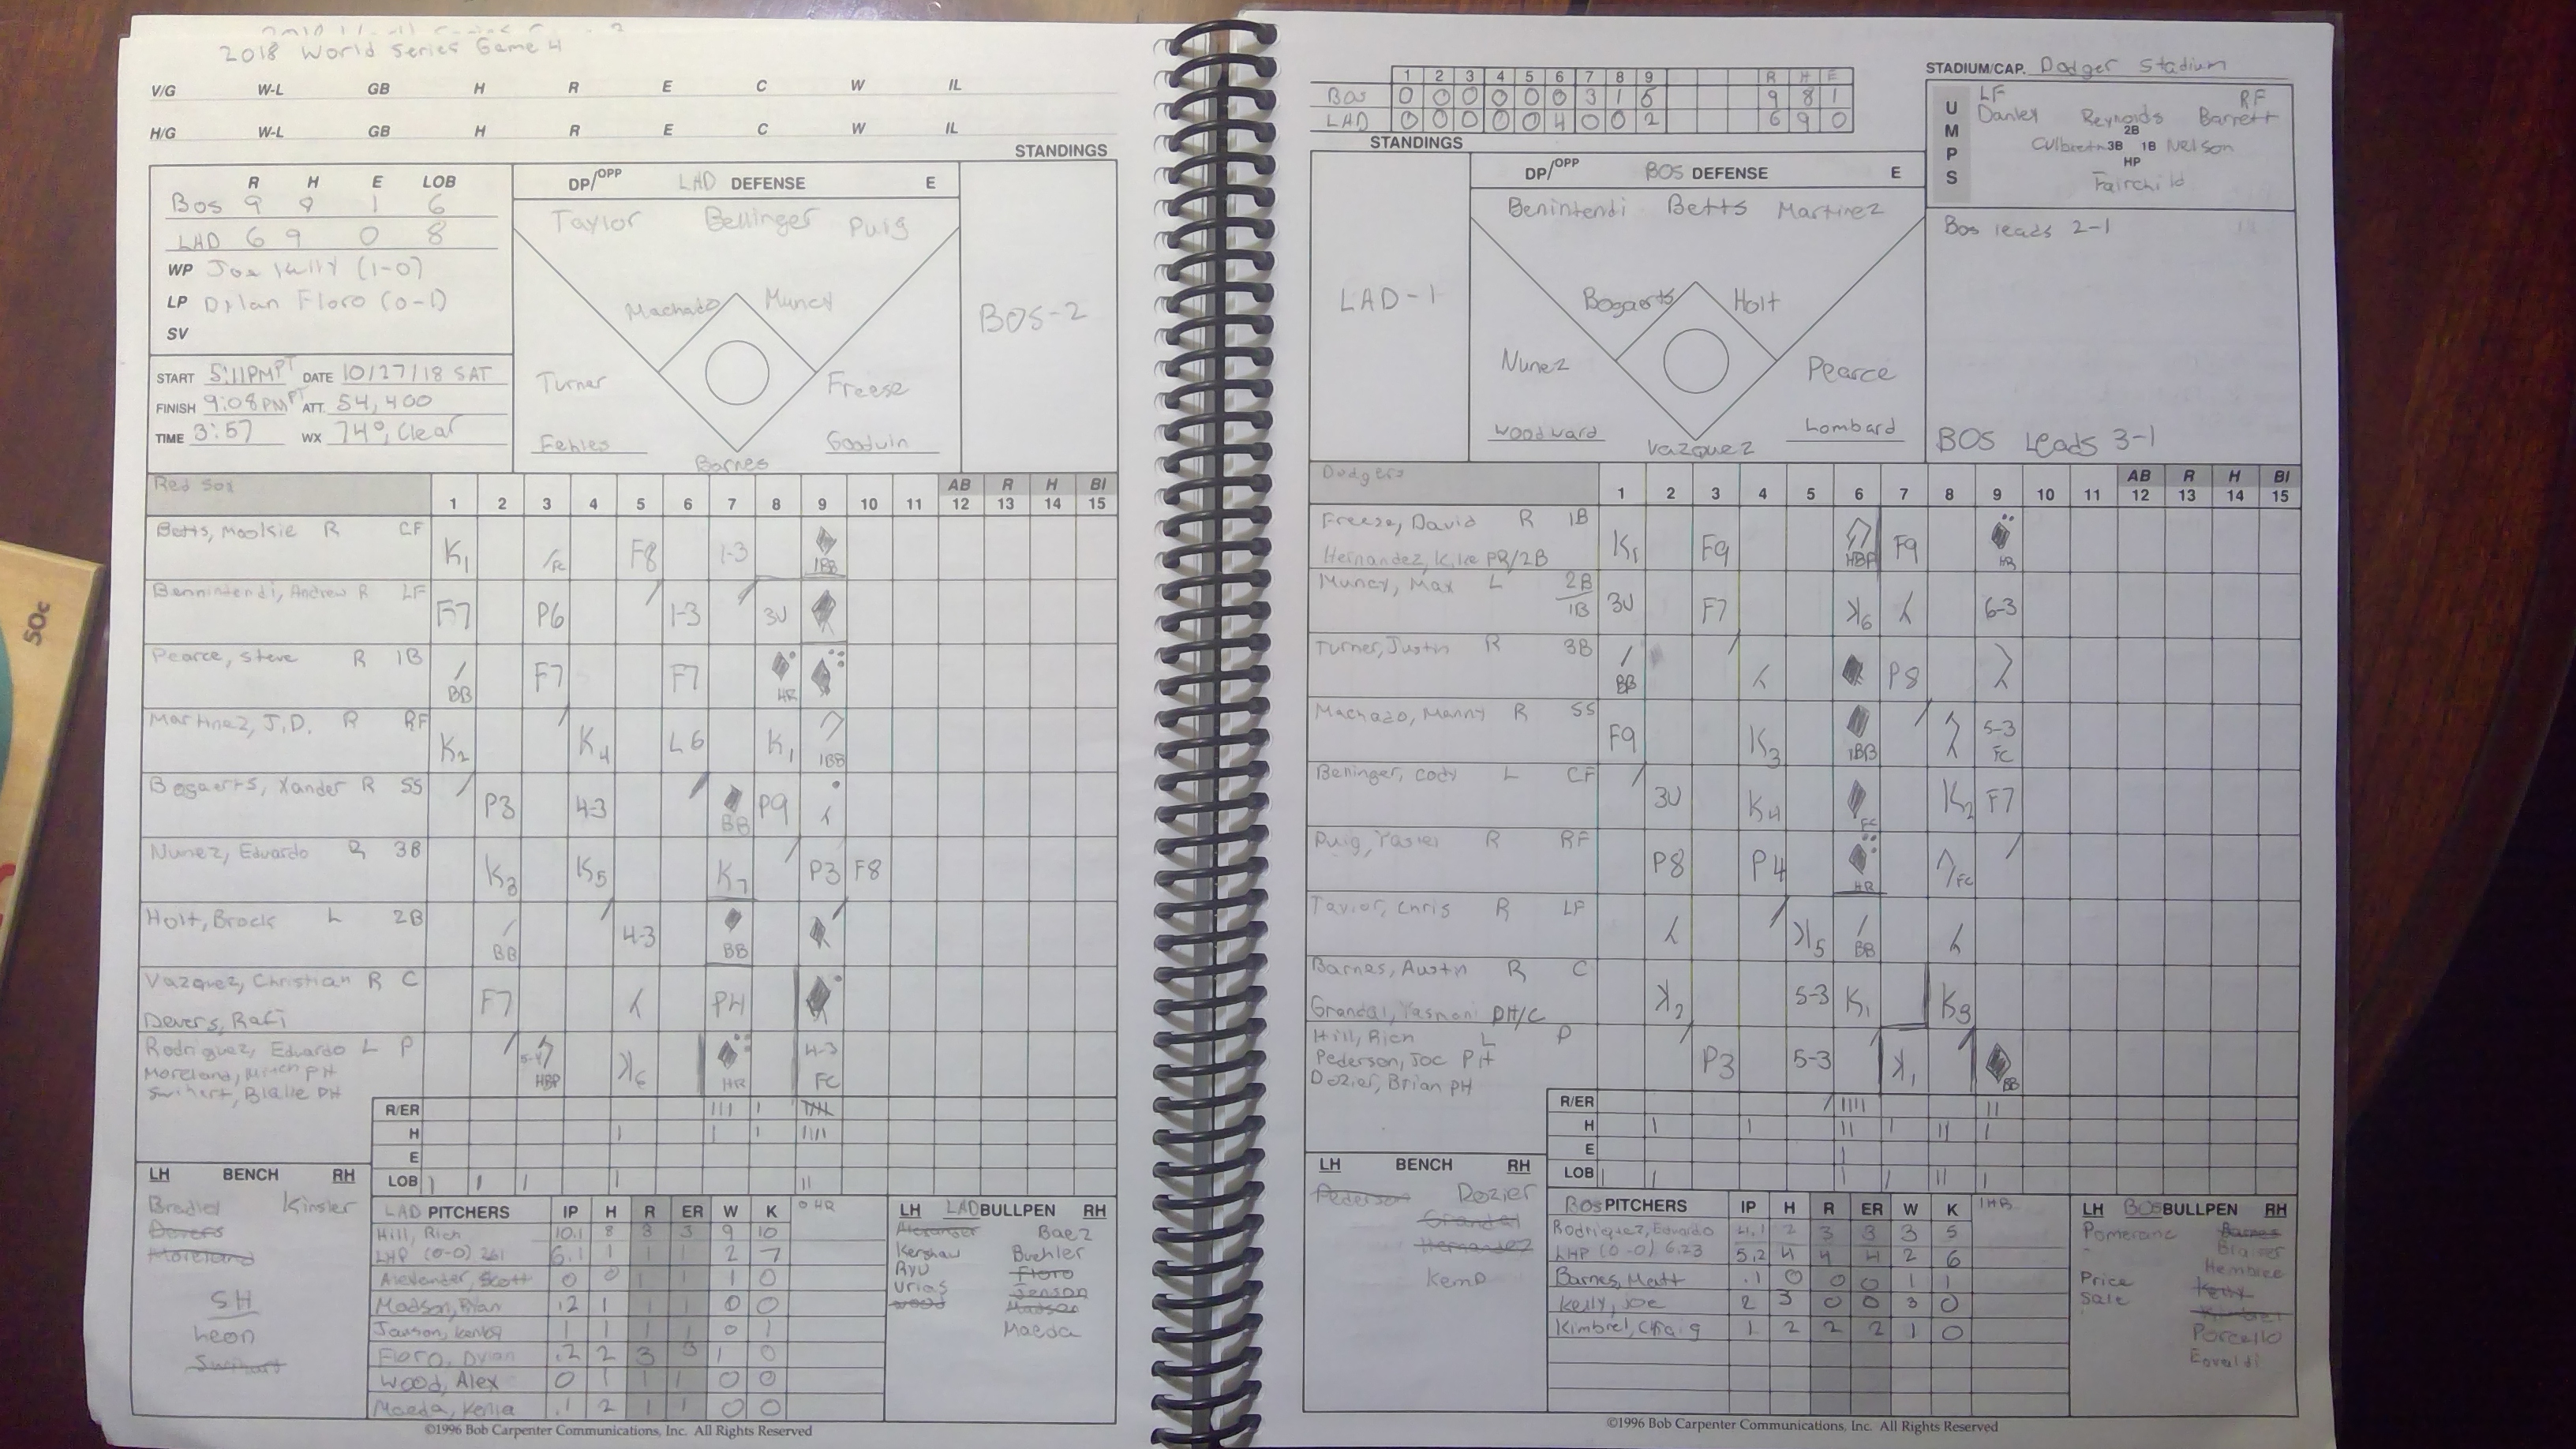 2018 World Series Game 4
V/G W-L GB H R E C W IL
H/G W-L GB H R E C W IL
STANDINGS
R H E LOB
Bos 9 8 1 6
LAD 6 9 0 8
WP Joe Kelly (1-0)
LP Dylan Floro (0-1)
SV
START 5:11PM PT DATE 10/27/18 SAT
FINISH 9:08PM PT ATT. 54,400
TIME 3:57 WX 74°, Clear
DP/OPP LAD DEFENSE E
Taylor Bellinger Puig
Machado Muncy
Turner Freese
Febles Goodwin
Barnes
BOS-2
Red Sox 1 2 3 4 5 6 7 8 9 10 11 AB 12 R 13 H 14 BI 15
Betts, Mookie R CF K1 FC F8 1-3 IBB
Bennintendi, Andrew R LF F7 P6 1-3 3U
Pearce, Steve R 1B BB F7 F7 HR
Martinez, J.D. R RF K2 K4 L6 K1 IBB
Bogaerts, Xander R SS P3 4-3 BB P9
Nunez, Eduardo R 3B K3 K5 K7 P3 F8
Holt, Brock L 2B BB 4-3 BB
Vazquez, Christian R C F7 PH
Devers, Rafi
Rodriguez, Eduardo L P 5-4 HBP K6 HR 4-3 FC
Moreland, Mitch PH
Swihart, Blake PH
R/ER
H
E
LOB
LH BENCH RH
Kinsler
Devers
Moreland
SH
Leon
Swihart
LAD PITCHERS IP H R ER W K 0 HR
Hill, Rich 10.1 8 3 3 9 10
LHP (0-0) 261 6.1 1 1 1 2 7
Alexander, Scott 0 0 1 1 1 0
Madson, Rian .2 1 1 1 0 0
Janson, Kenley 1 1 1 1 0 1
Floro, Dylan .2 2 3 3 1 0
Wood, Alex 0 1 1 1 0 0
Maeda, Kenta .1 2 1 1 0 0
LH LAD BULLPEN RH
Alexander Baez
Kershaw Buehler
Ryu Floro
Urias Jenson
Wood Madson
Maeda
©1996 Bob Carpenter Communications, Inc. All Rights Reserved
1 2 3 4 5 6 7 8 9 R H E
BOS 0 0 0 0 0 0 3 1 5 9 8 1
LAD 0 0 0 0 0 4 0 0 2 6 9 0
STANDINGS
STADIUM/CAP. Dodger Stadium
UMPS
LF RF
Danley Reynolds Barrett
2B
Culbreth 3B 1B Nelson
HP
Fairchild
Bos leads 2-1
BOS Leads 3-1
LAD-1
DP/OPP BOS DEFENSE E
Benintendi Betts Martinez
Bogaerts Holt
Nunez Pearce
Woodward Lombard
Vazquez
Dodgers 1 2 3 4 5 6 7 8 9 10 11 AB 12 R 13 H 14 BI 15
Freese, David R 1B K1 F9 HBP F9 HR
Hernandez, Kike PR/2B
Muncy, Max L 2B 1B 3U F7 K6 6-3
Turner, Justin R 3B BB P8
Machado, Manny R SS F9 K3 IBB 5-3 FC
Bellinger, Cody L CF 3U K4 FC K2 F7
Puig, Yasiel R RF P8 P4 HR FC
Taylor, Chris R LF K5 BB
Barnes, Austin R C K2 5-3 K1 K3
Grandal, Yasmani PH/C
Hill, Rich L P P3 5-3 K1 BB
Pederson, Joc PH
Dozier, Brian PH
R/ER
H
E
LOB
LH BENCH RH
Pederson Dozier
Grandal
Hernandez
Kemp
BOS PITCHERS IP H R ER W K 1HR
Rodriguez, Eduardo 4.1 2 3 3 3 5
LHP (0-0) 6.23 5.2 4 4 4 2 6
Barnes, Matt .1 0 0 0 1 1
Kelly, Joe 2 3 0 0 3 0
Kimbrel, Craig 1 2 2 2 1 0
LH BOS BULLPEN RH
Pomeranz Barnes
Brasier
Hembree
Price Kelly
Sale Kimbrel
Porcello
Eovaldi
©1996 Bob Carpenter Communications, Inc. All Rights Reserved
50c